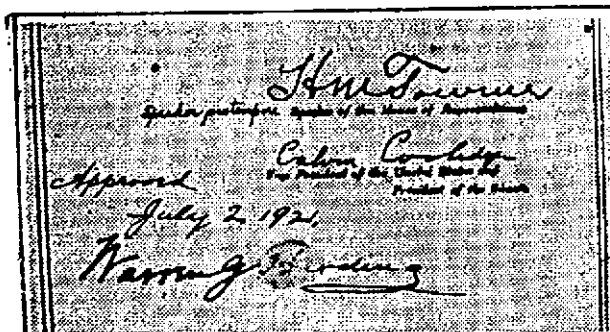 H M Towner
Speaker pro tempore Speaker of the House of Representatives
Calvin Coolidge
Vice President of the United States and
President of the Senate
Approved
July 2 1921,
Warren G Harding